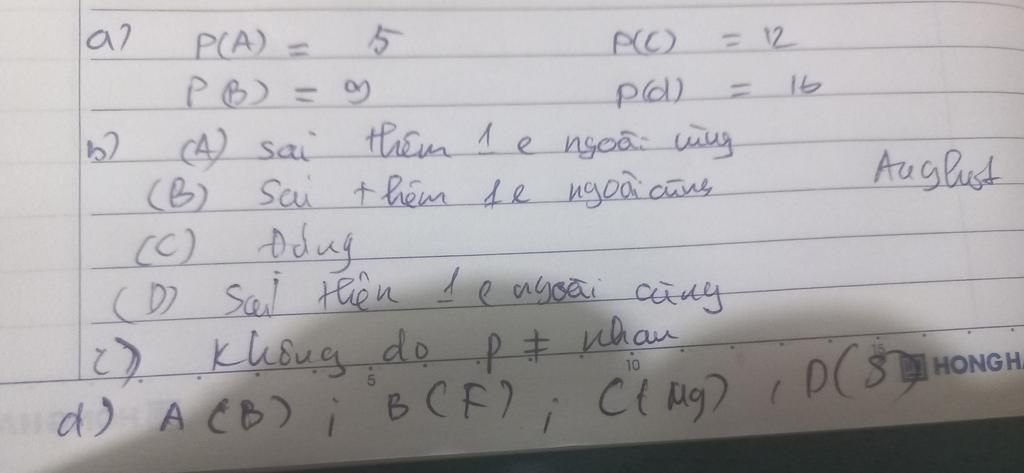 a) P(A) = 5 P(C) = 12
P(B) = 9 P(d) = 16
b) (A) sai thêm 1 e ngoài cùng
(B) Sai thêm 1e ngoài cùng
Auglust
(C) Đúng
(D) Sai thiện 1 e ngoài cùng
c) Không do p ≠ nhau
5 10 15
HONGH
d) A (B) ; B (F) ; C (Mg) , D (S)